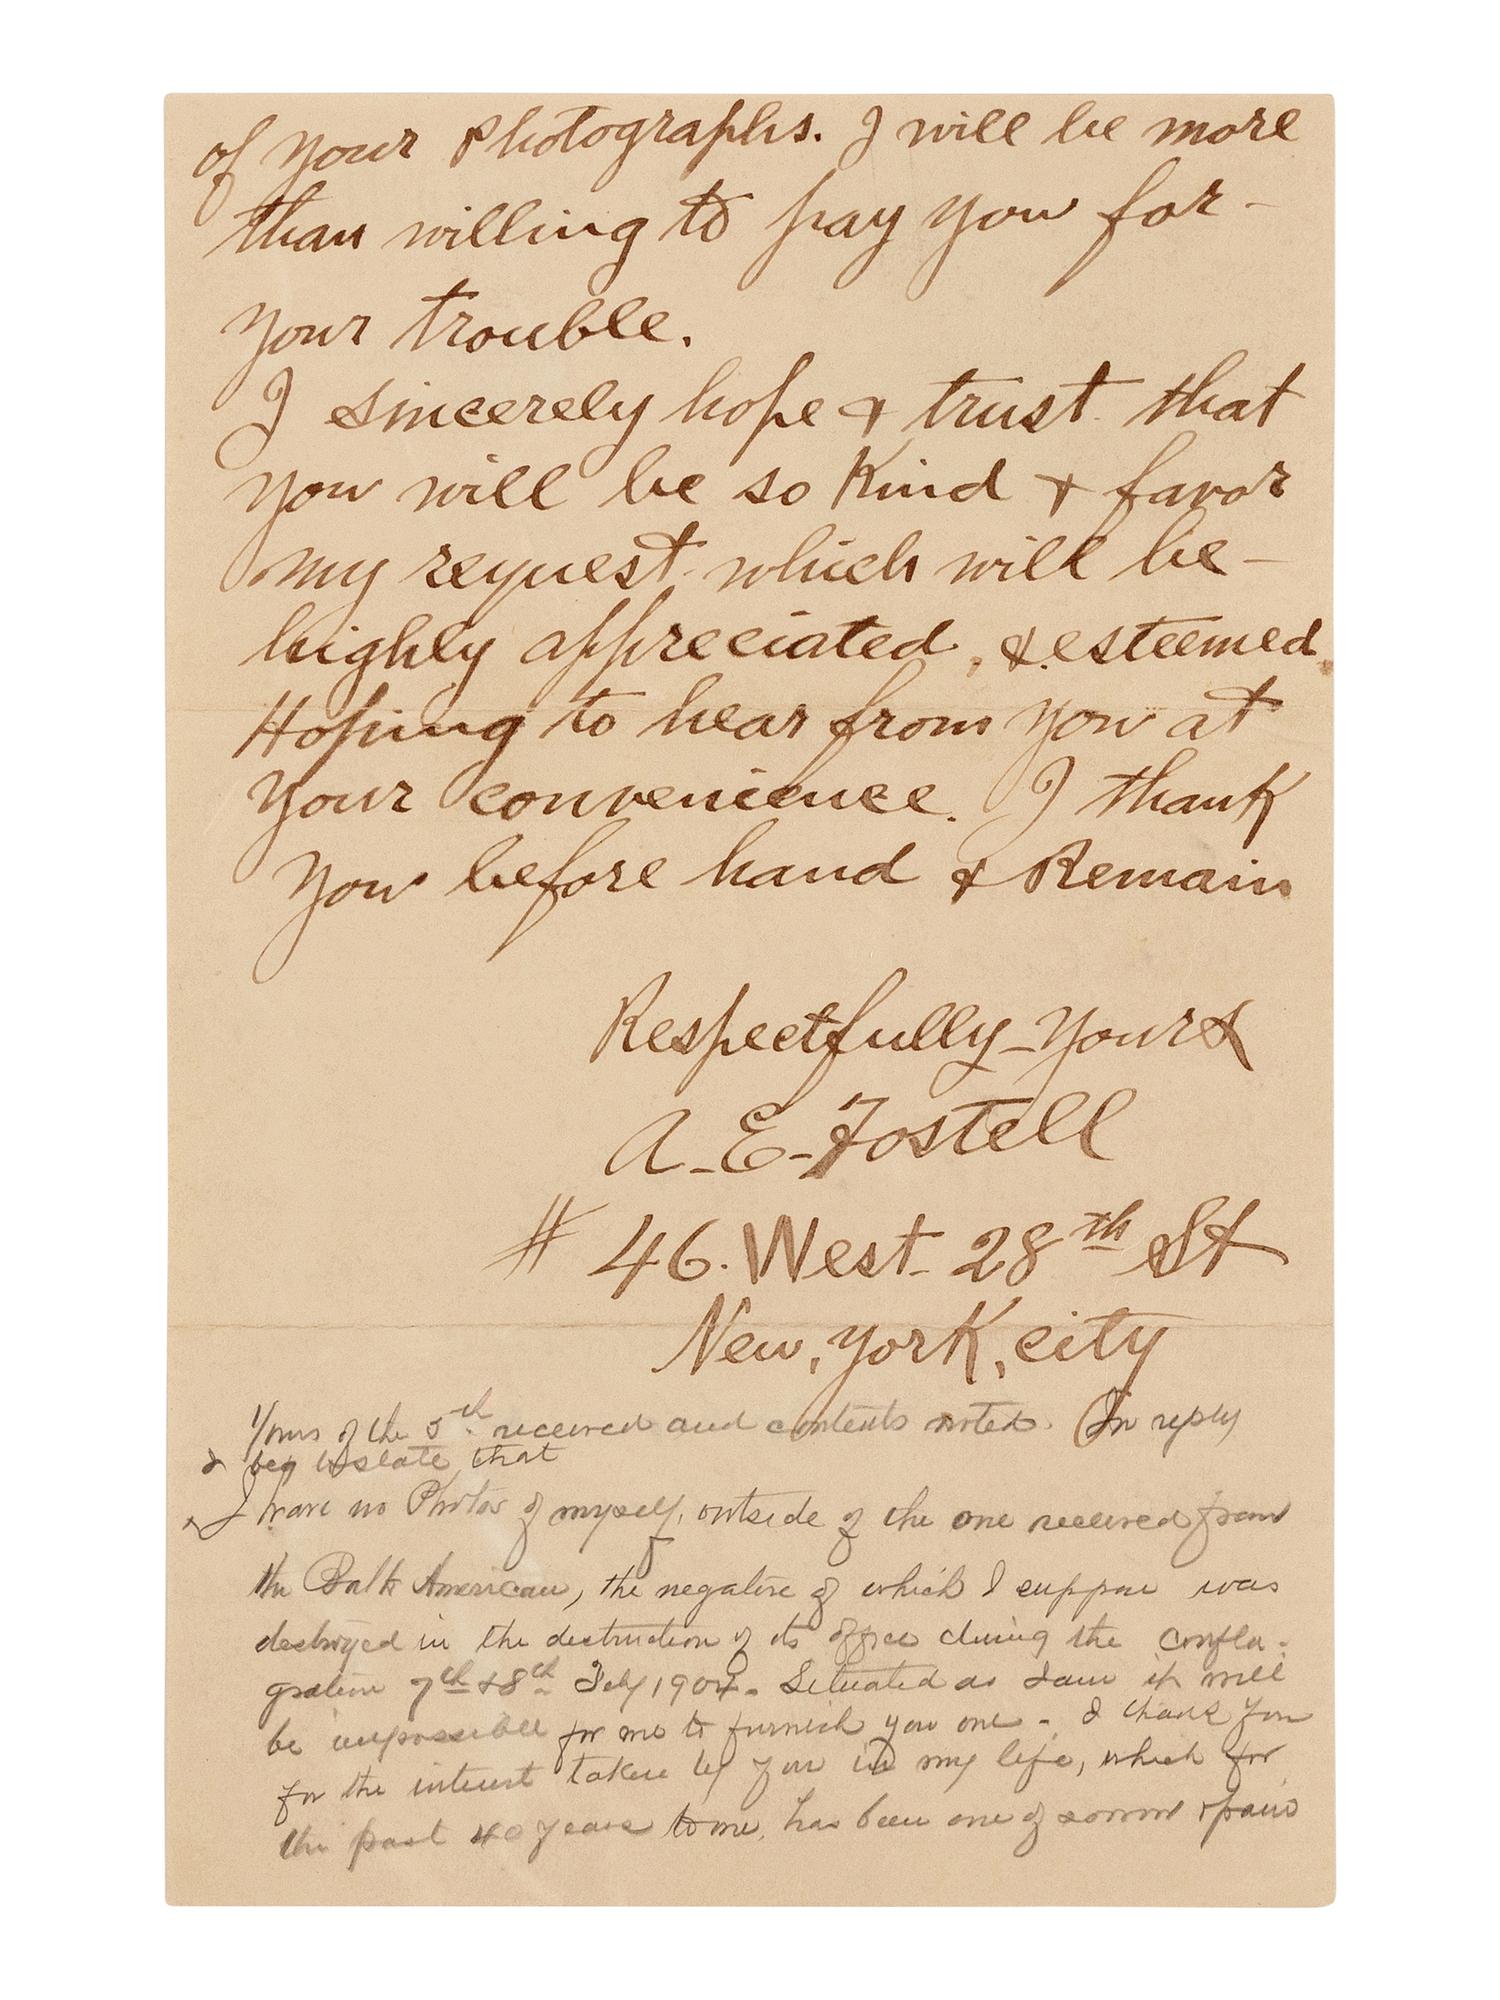 of your Photographs. I will be more
than willing to pay you for-
your trouble.
I sincerely hope & trust that
you will be so kind & favor
my request which will be-
highly appreciated, & esteemed.
Hoping to hear from you at
your convenience. I thank
you before hand & Remain
Respectfully-yours
A-E-Fostell
# 46. West-28th St
New, York, city
Yours of the 5th received and contents noted. In reply
I beg to state that
I have no Photos of myself, outside of the one received from
the Balto American, the negative of which I suppose was
destroyed in the destruction of its office during the confla-
gration 7th & 8th Feby 1904. Situated as I am it will
be impossible for me to furnish you one - I thank you
for the interest taken by you in my life, which for
the past 40 years to me, has been one of sorrow & pain